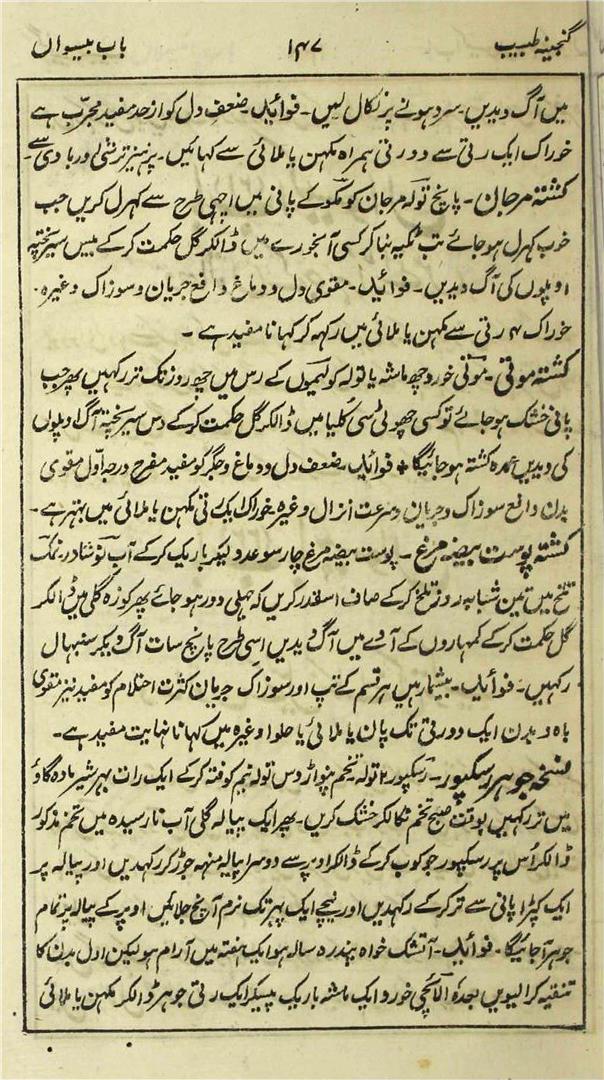 گنجینہ طبیب ۱۴۷ باب بیسواں
میں آگ دیدیں۔ سرد ہونے پر نکال لیں۔ فوائد۔ ضعف دل کو ازحد مفید مجرّب ہے
خوراک ایک رتی سے دو رتی ہمراہ مکہن یا ملائی سے کہائیں۔ پرہیز ترشی اور بادی سے۔
کشتہ مرجان۔ پانچ تولہ مرجان کو مکو کے پانی میں اچہی طرح سے کہرل کریں جب
خوب کہرل ہو جائے تب ٹکیہ بنا کر کسی آبخورے میں ڈالکر گل حکمت کر کے بیس سیر پختہ
اوپلوں کی آگ دیدیں۔ فوائد۔ مقوی دل و دماغ دافع جریان و سوزاک وغیرہ۔
خوراک ۴ رتی سے مکہن یا ملائی میں رکہہ کر کہانا مفید ہے۔
کشتہ موتی۔ موتی خورد چھ ماشہ یا تولہ کو لیموں کے رس میں چھ روز تک تر رکہیں پھر جب
پانی خشک ہو جائے تو کسی چھوٹی سی کلیا میں ڈالکر گل حکمت کر کے دس سیر پختہ آگ اوپلوں
کی دیدیں عمدہ کشتہ ہو جائیگا + فوائد۔ ضعف دل و دماغ و جگر کو مفید مفرح درجہ اوّل مقوی
بدن دافع سوزاک و جریان و سرعت انزال وغیرہ۔ خوراک ایک رتی مکہن یا ملائی میں بہتر ہے۔
کشتہ پوست بیضہ مرغ۔ پوست بیضہ مرغ چار سو عدد لیکر باریک کر کے آب نوشادر۔ نمک
تلخ میں تین شبانہ روز تلخ کر کے صاف اسقدر کریں کہ جہلی دور ہو جائے پھر کوزہ گلی میں ڈالکر
گل حکمت کر کے کمہاروں کے آوے میں آگ دیدیں اسی طرح پانچ سات آگ دیکر سنبہال
رکہیں۔ فوائد۔ بیشمار ہیں ہر قسم کے تپ اور سوزاک جریان کثرت احتلام کو مفید نیز مقوی
باہ و بدن ایک دو رتی تک پان یا ملائی یا حلوا وغیرہ میں کہانا نہایت مفید ہے۔
نسخہ جوہر رسکپور۔ رسکپور ۲ تولہ تخم پنواڑ دس تولہ نیم کوفتہ کر کے ایک رات بہر شیر مادہ گاؤ
میں تر رکہیں بوقت صبح تخم نکالکر خشک کریں۔ پھر ایک پیالہ گلی آب نارسیدہ میں تخم مذکور
ڈالکر اُس پر رسکپور جوکوب کر کے ڈالکر اوپر سے دوسرا پیالہ منہہ جوڑ کر رکہدیں اور پیالہ پر
ایک کپڑا پانی سے تر کر کے رکہدیں اور نیچے ایک پہر تک نرم آنچ جلائیں اوپر کے پیالہ پر تمام
جوہر آ جائیگا۔ فوائد۔ آتشک خواہ پندرہ سالہ ہو ایک ہفتہ میں آرام ہو لیکن اول بدن کا
تنقیہ کرا لیویں بعدہ الائچی خورد ایک ماشہ باریک پیسکر ایک رتی جوہر ڈالکر مکہن یا ملائی